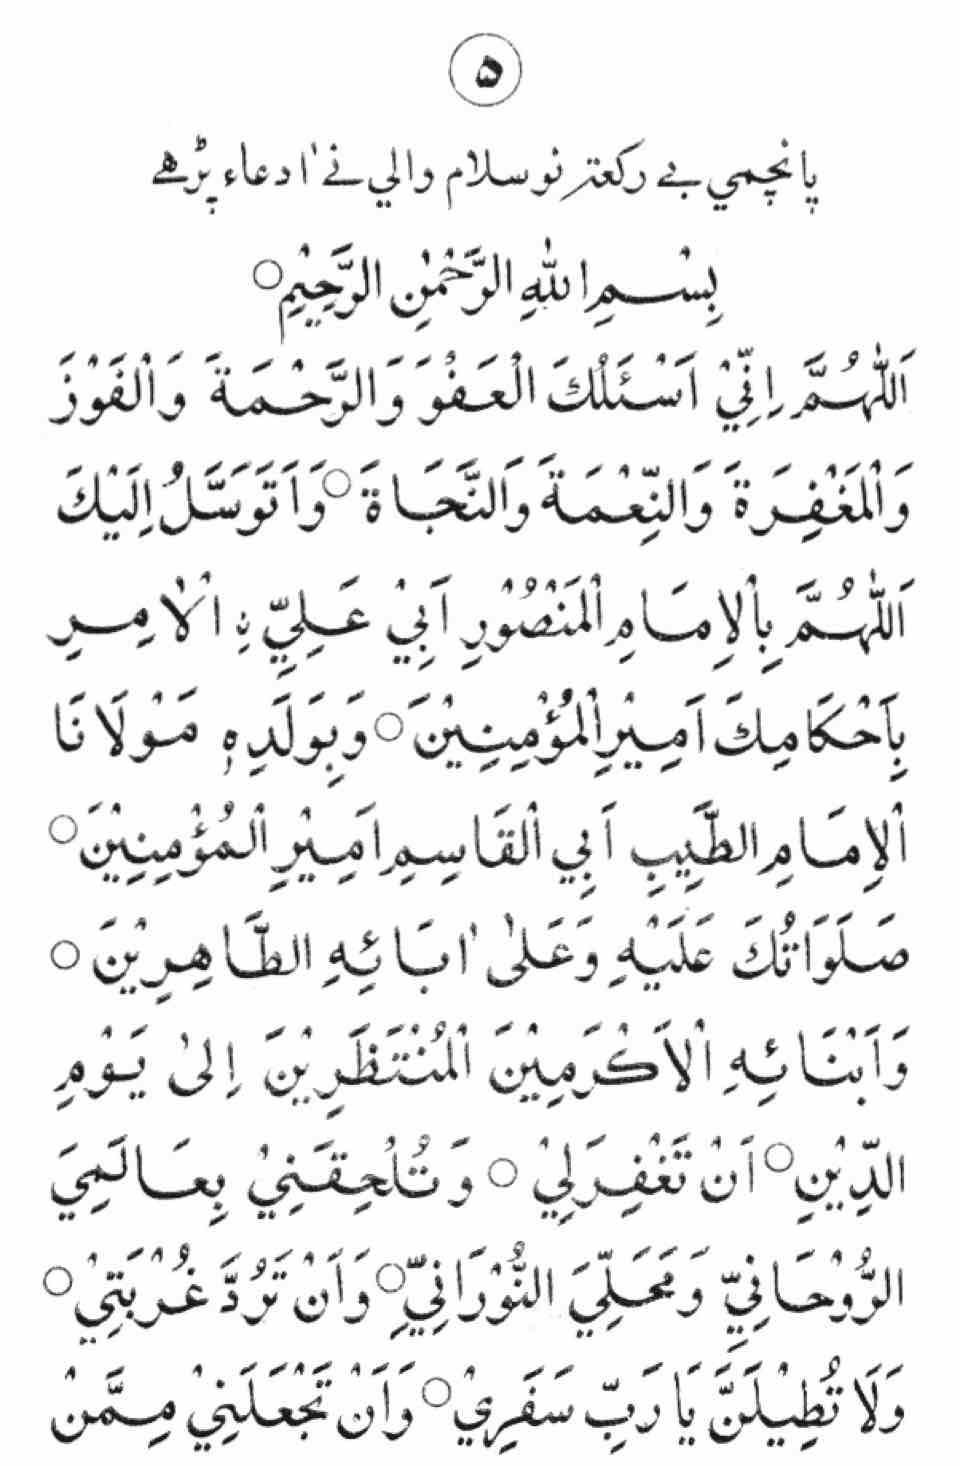 ۵
پانچمي بے ركعتر نو سلام والي نے اٰ دعاء پڑهے
بِسْمِ اللهِ الرَّحْمٰنِ الرَّحِيْمِ○
اَللّٰهُمَّ اِنِّيْ اَسْئَلُكَ الْعَفْوَ وَالرَّحْمَةَ وَالْفَوْزَ
وَالْمَغْفِرَةَ وَالنِّعْمَةَ وَالنَّجَاةَ○ وَاَتَوَسَّلُ اِلَيْكَ
اَللّٰهُمَّ بِالْاِمَامِ الْمَنْصُوْرِ اَبِيْ عَلِيٍّ ۣالْاٰمِرِ
بِاَحْكَامِكَ اَمِيْرِ الْمُؤْمِنِيْنَ○ وَبِوَلَدِهٖ مَوْلَانَا
الْاِمَامِ الطَّيِّبِ اَبِي الْقَاسِمِ اَمِيْرِ الْمُؤْمِنِيْنَ○
صَلَوَاتُكَ عَلَيْهِ وَعَلٰى اٰبَائِهِ الطَّاهِرِيْنَ○
وَاَبْنَائِهِ الْاَكْرَمِيْنَ الْمُنْتَظَرِيْنَ اِلىٰ يَوْمِ
الدِّيْنِ○ اَنْ تَغْفِرَلِيْ○ وَتُلْحِقَنِيْ بِعَالَمِيَ
الرُّوْحَانِيِّ وَمَحَلِّيَ النُّوْرَانِيِّ○ وَاَنْ تَرُدَّ غُرْبَتِيْ○
وَلَا تُطِيْلَنَّ يَا رَبِّ سَفَرِيْ○ وَاَنْ تَجْعَلَنِيْ مِمَّنْ